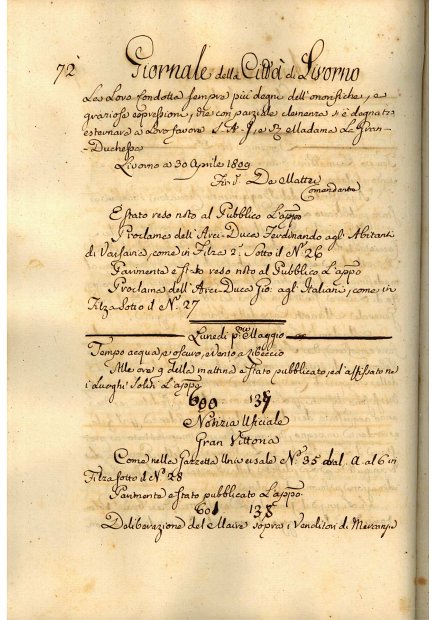 72 Giornale della Città di Livorno
La Loro condotta sempre più degni dell'onorifiche, e
graziose espressioni, che con parziale clemenza si è degnata
esternare a Loro favore S. A. I. e Madama La Gran
Duchessa
Livorno a 30 Aprile 1809
De Mattei
Comandante
E stato reso noto al Pubblico L'appo
Proclama dell'Arci-Duca Ferdinando agl'Abitanti
di Varsavia, come in Filza 2. Sotto il N.º 26
Parimente è stato reso noto al Pubblico L'appo
Proclama dell'Arci-Duca Gio: agl'Italiani, come in
Filza Sotto il N.º 27
Lunedì p.mo Maggio
Tempo acqua, e oscuro, e vento a Libeccio
Alle ore 9 della mattina è stato pubblicato, ed affissato ne
i luoghi Soliti L'appo
600 137
Notizia Uficiale
Gran Vittoria
Come nella Gazzetta Universale N.º 35 dal. A. al 6 in
Filza sotto il N.º 28
Parimente è stato pubblicato L'appo
601 138
Deliberazione del Maire sopra i Venditori di